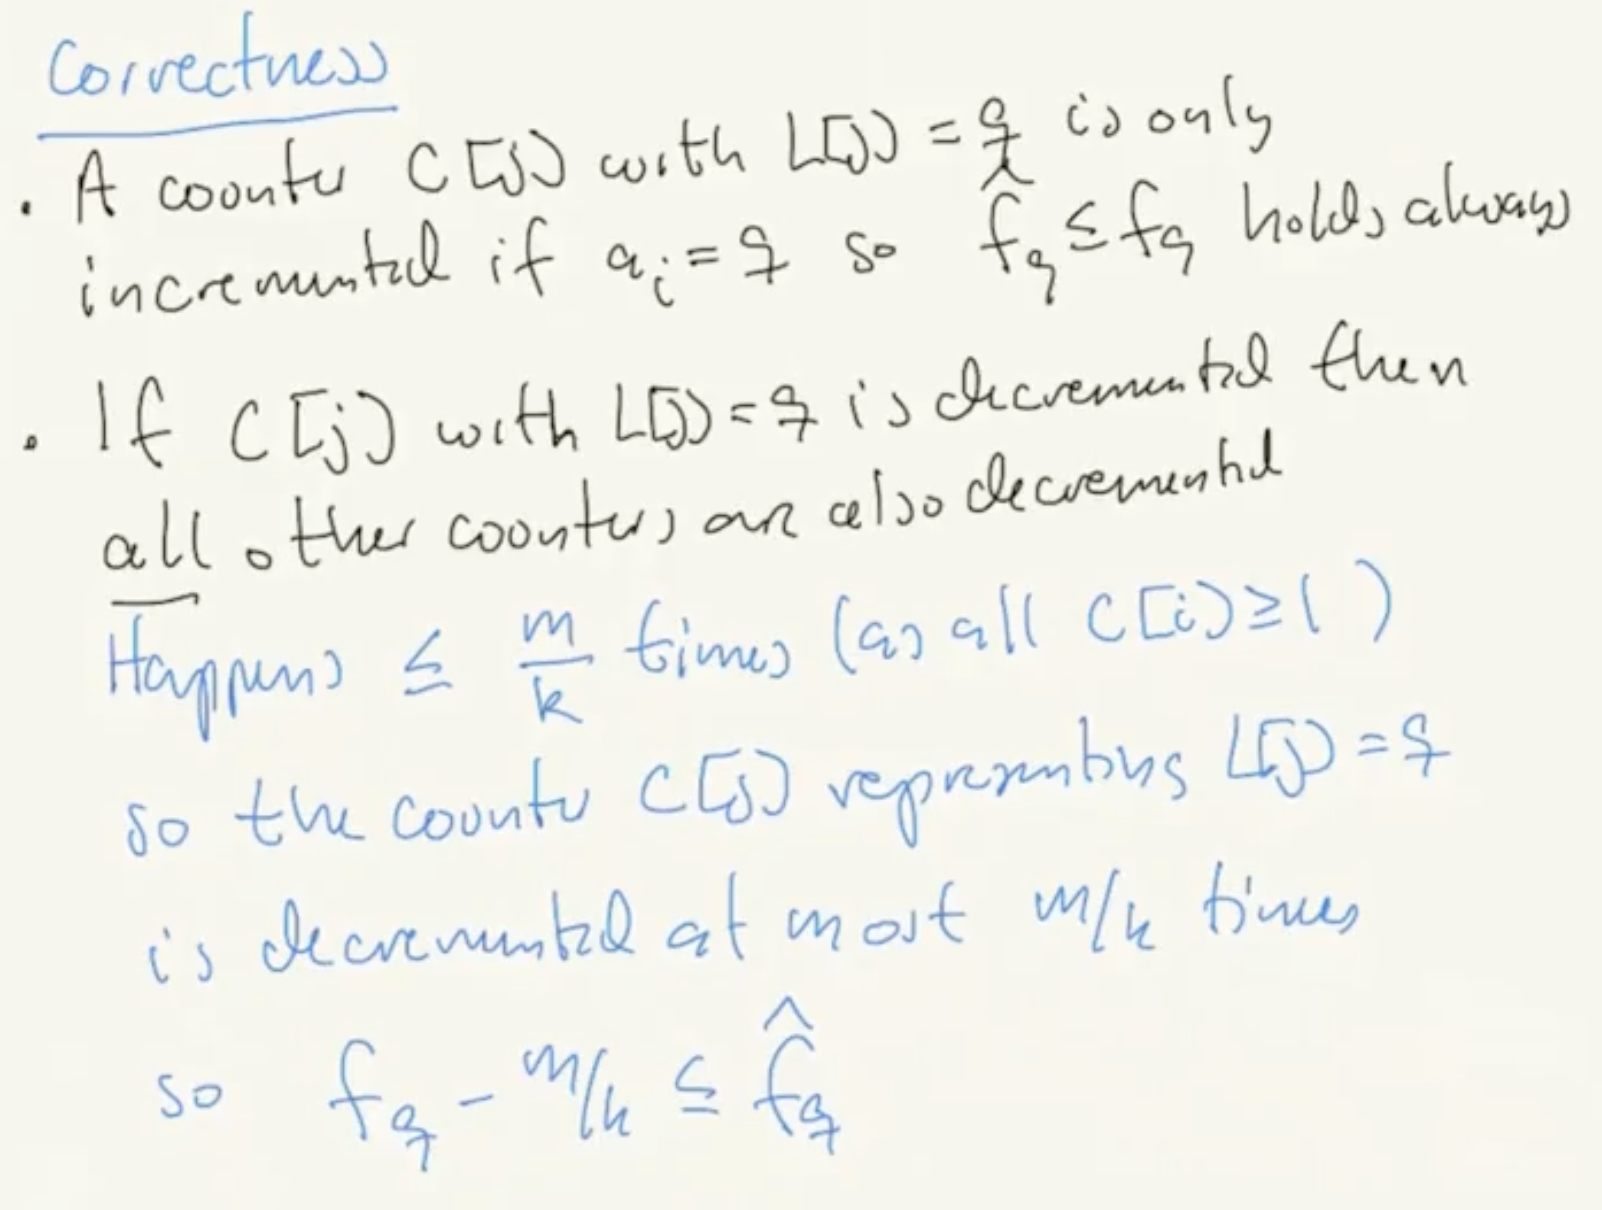 Correctness
. A counter C[j] with L[j] = q is only
incremented if a_i = q so f̂_q ≤ f_q holds always
. If C[j] with L[j] = q is decremented then
all other counters are also decremented
Happens ≤ m/k times (as all C[i] ≥ 1)
so the counter C[j] representing L[j] = q
is decremented at most m/k times
so f_q - m/k ≤ f̂_q